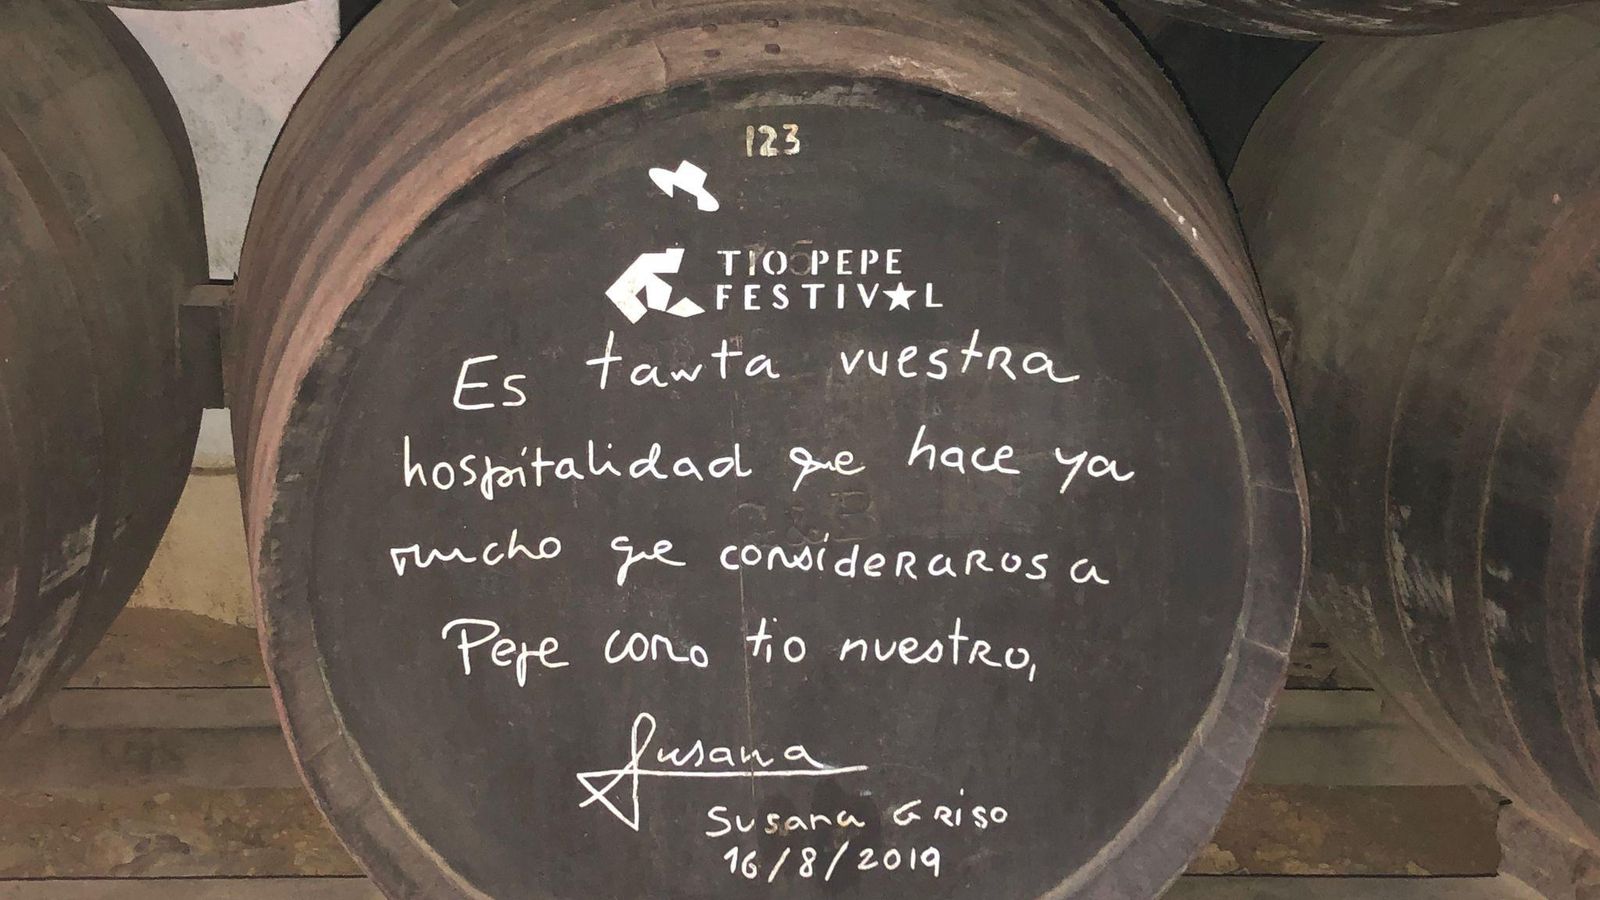 123
TIO PEPE
FESTIV★L
Es tanta vuestra
hospitalidad que hace ya
mucho que consideraros a
Pepe como tio nuestro,
Susana
Susana Griso
16/8/2019